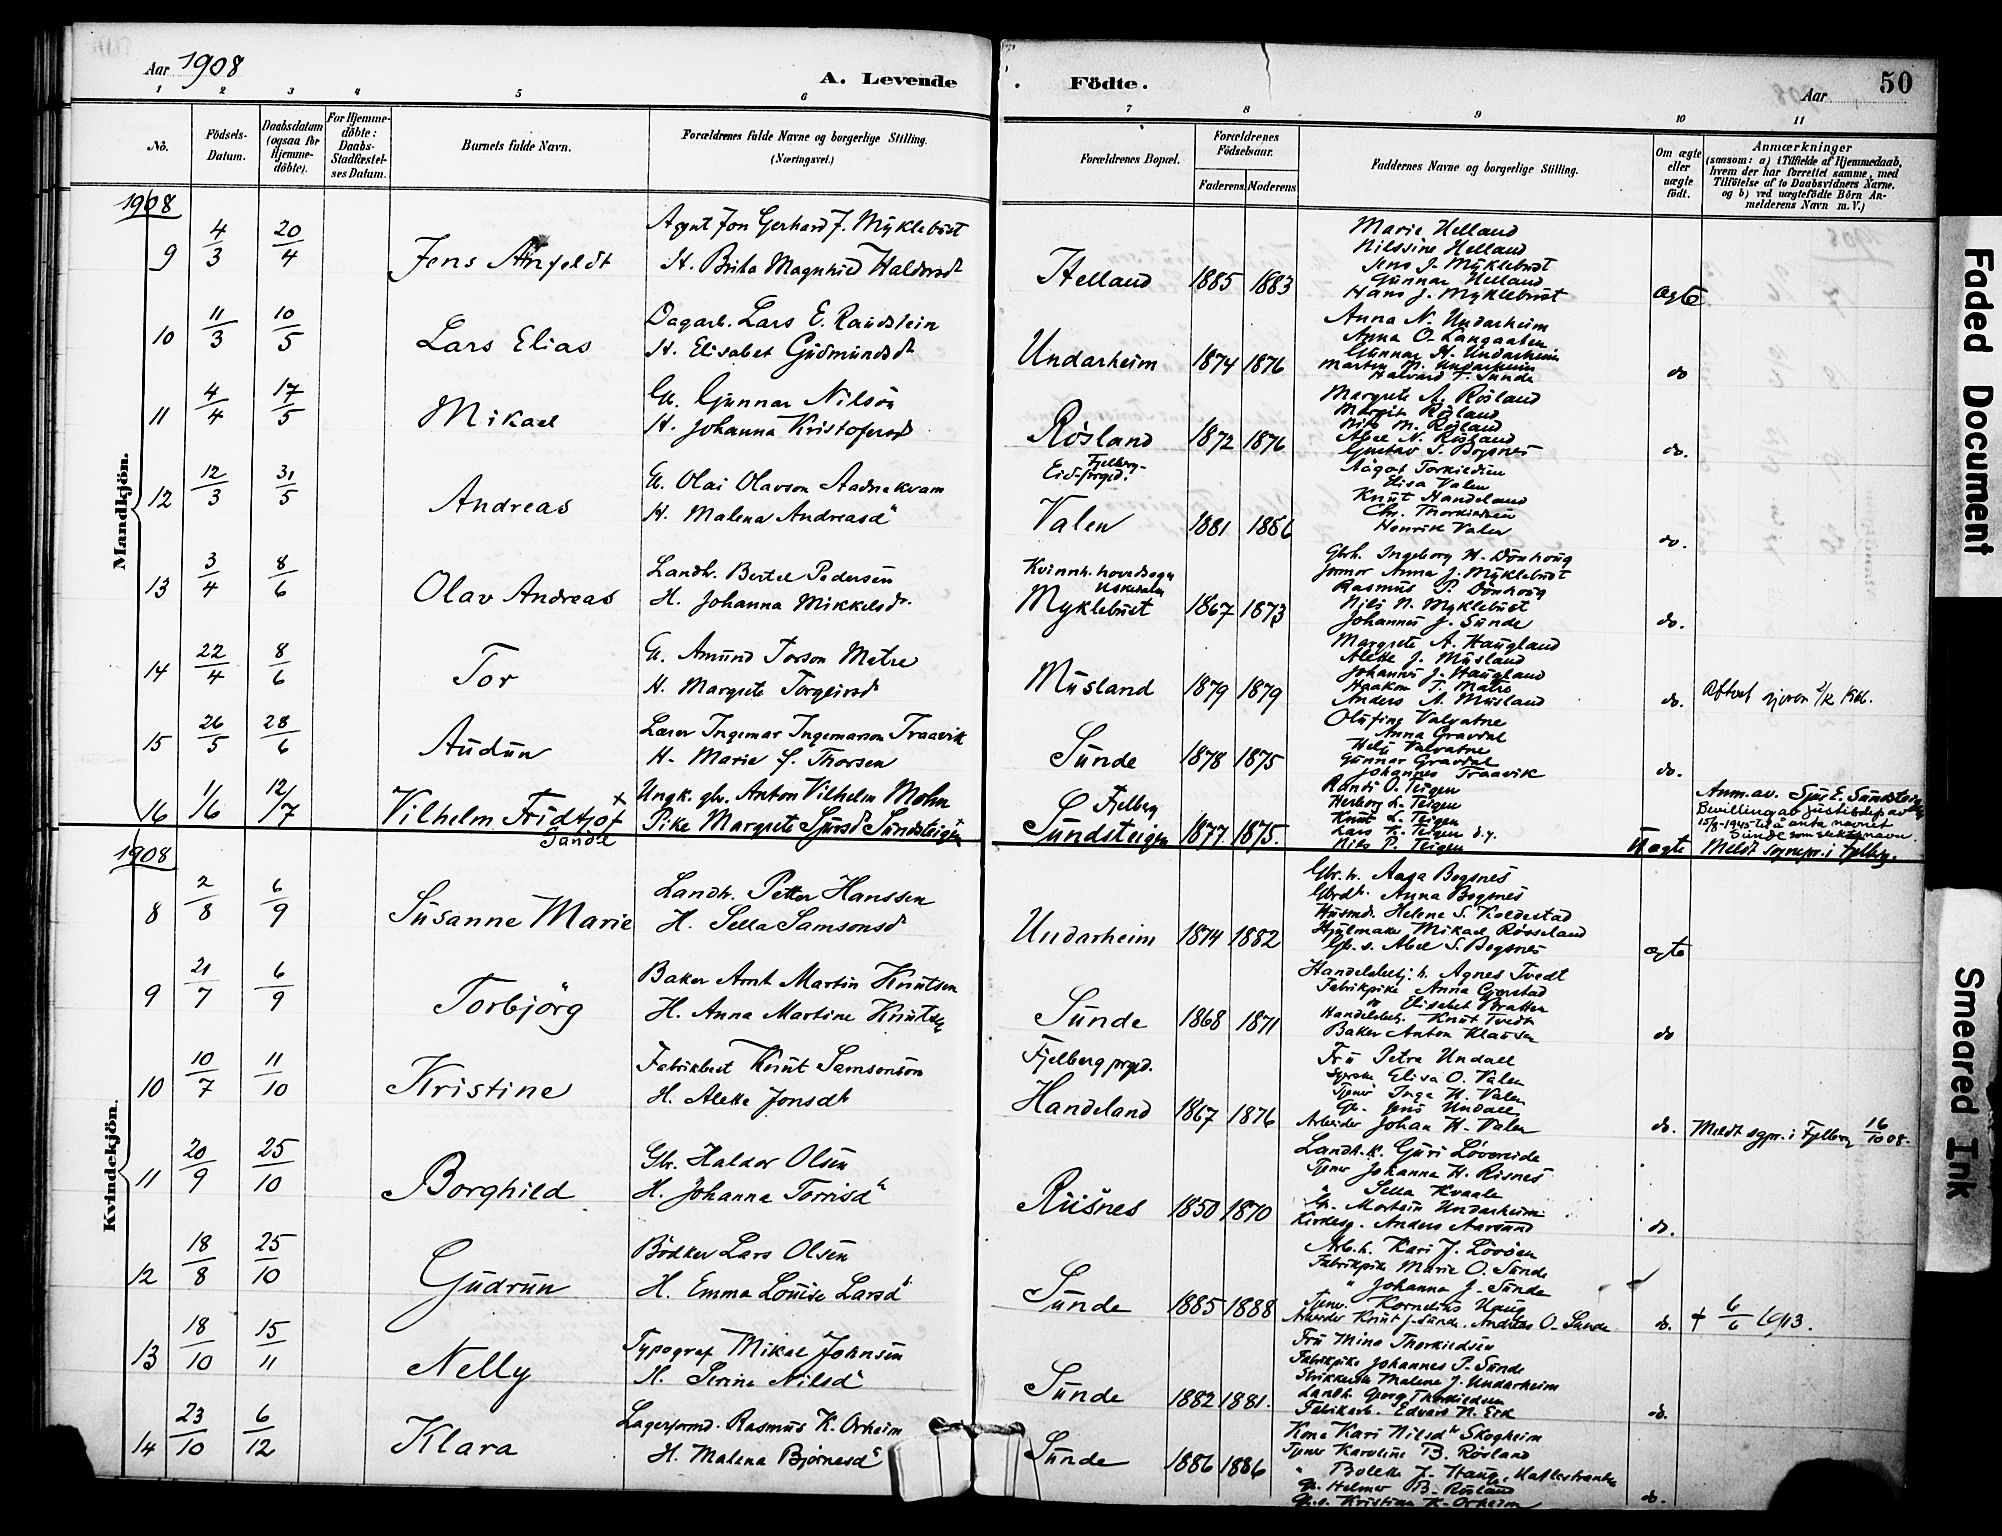 Aar 1908
A. Levende
Födte.
Aar
50
1 2 3 4 5 6 7 8 9 10 11
No.
Födsels-Datum.
Daabsdatum (ogsaa for Hjemme-döbte).
For Hjemme-döbte: Daabs-Stadfæstel-ses Datum.
Barnets fulde Navn.
Forældrenes fulde Navne og borgerlige Stilling.
(Næringsvei.)
Forældrenes Bopæl.
Forældrenes Födselsaar.
Faderens. Moderens.
Faddernes Navne og borgerlige Stilling.
Om ægte eller uægte født.
Anmærkninger
(saasom: a) i Tilfælde af Hjemmedaab, hvem der har forrettet samme, med Tilföielse af to Daabsvidners Navne. og b) ved uægtefödte Börn An-melderens Navn m. V.)
Mandkjön.
1908
9 4/3 20/4 Jens
Agent Jon Gerhard J. Myklebust
H. Brita Magnhild Haldorsdt
Helland 1885 1883
Marie Helland
Nilssine Helland
Jens J. Myklebust
Gunnar Helland
Hans J. Myklebust
ægte
10 11/3 10/5 Lars Elias
Dagarb. Lars E. Raudstein
H. Elisabet Gudmundsdt
Undarheim 1874 1876
Anna N. Undarheim
Anna O. Langaaten
Gunnar H. Undarheim
Martin N. Undarheim
Halvard T. Sunde
do
11 4/4 17/5 Mikael
G. Gunnar Nilsön
H. Johanna Kristofersd
Røsland 1872 1876
Margrete A. Røsland
Margit Røsland
Nils M. Røsland
Abel N. Røsland
Gustav S. Bogsnes
do.
12 12/3 31/5 Andreas
G. Olai Olavson Aadnekvam
H. Malena Andreasd
Fjelberg-
Eid-prgd.
Valen 1881 1886
Aagot Torkildsen
Elisa Valen
Knut Handeland
Chr. Thorkildsen
Henrik Valen
do.
13 3/4 8/6 Olav Andreas
Landh. Bertel Pedersen
H. Johanna Mikkelsdr.
Kvinnh. hovedsogn
Uskedalen
Myklebust 1867 1873
Gbrh. Ingeborg H. Dönhoug
Anna J. Myklebust
Rasmus P. Dönhoug
Nils N. Myklebust
Johannes J. Sunde
do.
14 22/4 8/6 Tor
G. Amund Torson Matre
H. Margrete Torgeirsd
Musland 1879 1879
Margrete A. Haugland
Alette J. Musland
Johannes J. Haugland
Haakon T. Matre
Anders A. Musland
do.
15 26/5 28/6 Audun
Lærer Ingemar Ingemarson Traavik
H. Marie S. Thorsen
Sunde 1878 1875
Olufine Valvatne
Anna Gravdal
Helje Valvatne
Gunnar Gravdal
Johannes Traavik
do.
16 1/6 12/7 Vilhelm Fridtjof
Sunde
Ungk. gbr. Anton Vilhelm Mohn
Pike Margrete Sjursd Sundsteigen
Fjelberg
Sundsteigen 1877. 1875.
Randi O. Teigen
Herborg L. Teigen
Knut L. Teigen
Lars K. Teigen d.y.
Nils P. Teigen
Uægte
Anm. av. Sju E. Sundsteigen
Bevilling av Justisdep. av
15/8-1945 til å anta navnet
Sunde som slektsnavn.
Meldt sognepr. i Fjelberg.
Kvindekjön.
1908
8 2/8 6/9 Susanne Marie
Landh. Petter Hanssen
H. Sella Samsonsd
Undarheim 1874 1882
Gbr. h. Aasa Bogsnes
Gbrdt. Anna Bogsnes
Husmd. Helene S. Koldestad
Hjulmaker Mikael Røsseland
Gb. s. Abel S. Bogsnes
ægte
9 21/7 6/9 Torbjörg
Baker Arnt Martin Knutsen
H. Anna Martine Knutsen
Sunde 1868 1871
Handelsbetj. h. Agnes Tvedt
Fabrikpike Anna Gjerstad
do Elisabet Bratten
Handelsbetj. Knut Tvedt
Baker Anton Klausen
do
10 10/7 11/10 Kristine
Fabrikbest Knut Samsonson
H. Alette Jonsdt
Fjelberg prgd.
Handeland 1867 1876
Fru Petra Undall
Syerske Elisa O. Valen
Tjener Inga H. Valen
Gb. Jens Undall
Arbeider Johan H. Valen
do.
Meldt sgpr. i Fjelberg 16/10 08.
11 20/9 25/10 Borghild
Gbr. Haldor Olsen
H. Johanna Torrisd
Riisnes 1850 1870
Landh. k. Guri Lövereide
Tjener Johanna H. Risnes
" Sella Kvaale
G. Mortein Undarheim
Kirkesg. Anders Aarsand
do.
12 18/8 25/10 Gudrun
Bödker Lars Olsen
H. Emma Louise Larsd
Sunde 1885 1888
Arb. h. Kari J. Lövöen
Fabrikpike Marie O. Sunde
" Johanna J. Sunde
Tjener. Kornelius Haug
Arbeider Knut J. Sunde. Andreas O. Sunde
do.
+ 6/6 1913.
13 18/10 15/11 Nelly
Typograf Mikal Johnsen
H. Serine Nilsd
Sunde 1882 1881.
Fru Mina Thorkildsen
Fabrikpike Johannes P. Sunde
Strikkerske Malene J. Undarheim
Landh. Georg Thorkildsen
Fabrikarb. Edvard N. Eik
do.
14 23/10 6/12 Klara
Lagerformd. Rasmus K. Orheim
H. Malena Bjørnesd
Sunde 1886 1886
Kone Kari Nilsdt Skogheim
Tjener Karoline B. Røsland
" Bolette J. Haug,
G. Helmer B. Røsland
Gb. s. Kristian K. Orheim
do.
Faded Document
Smeared Ink